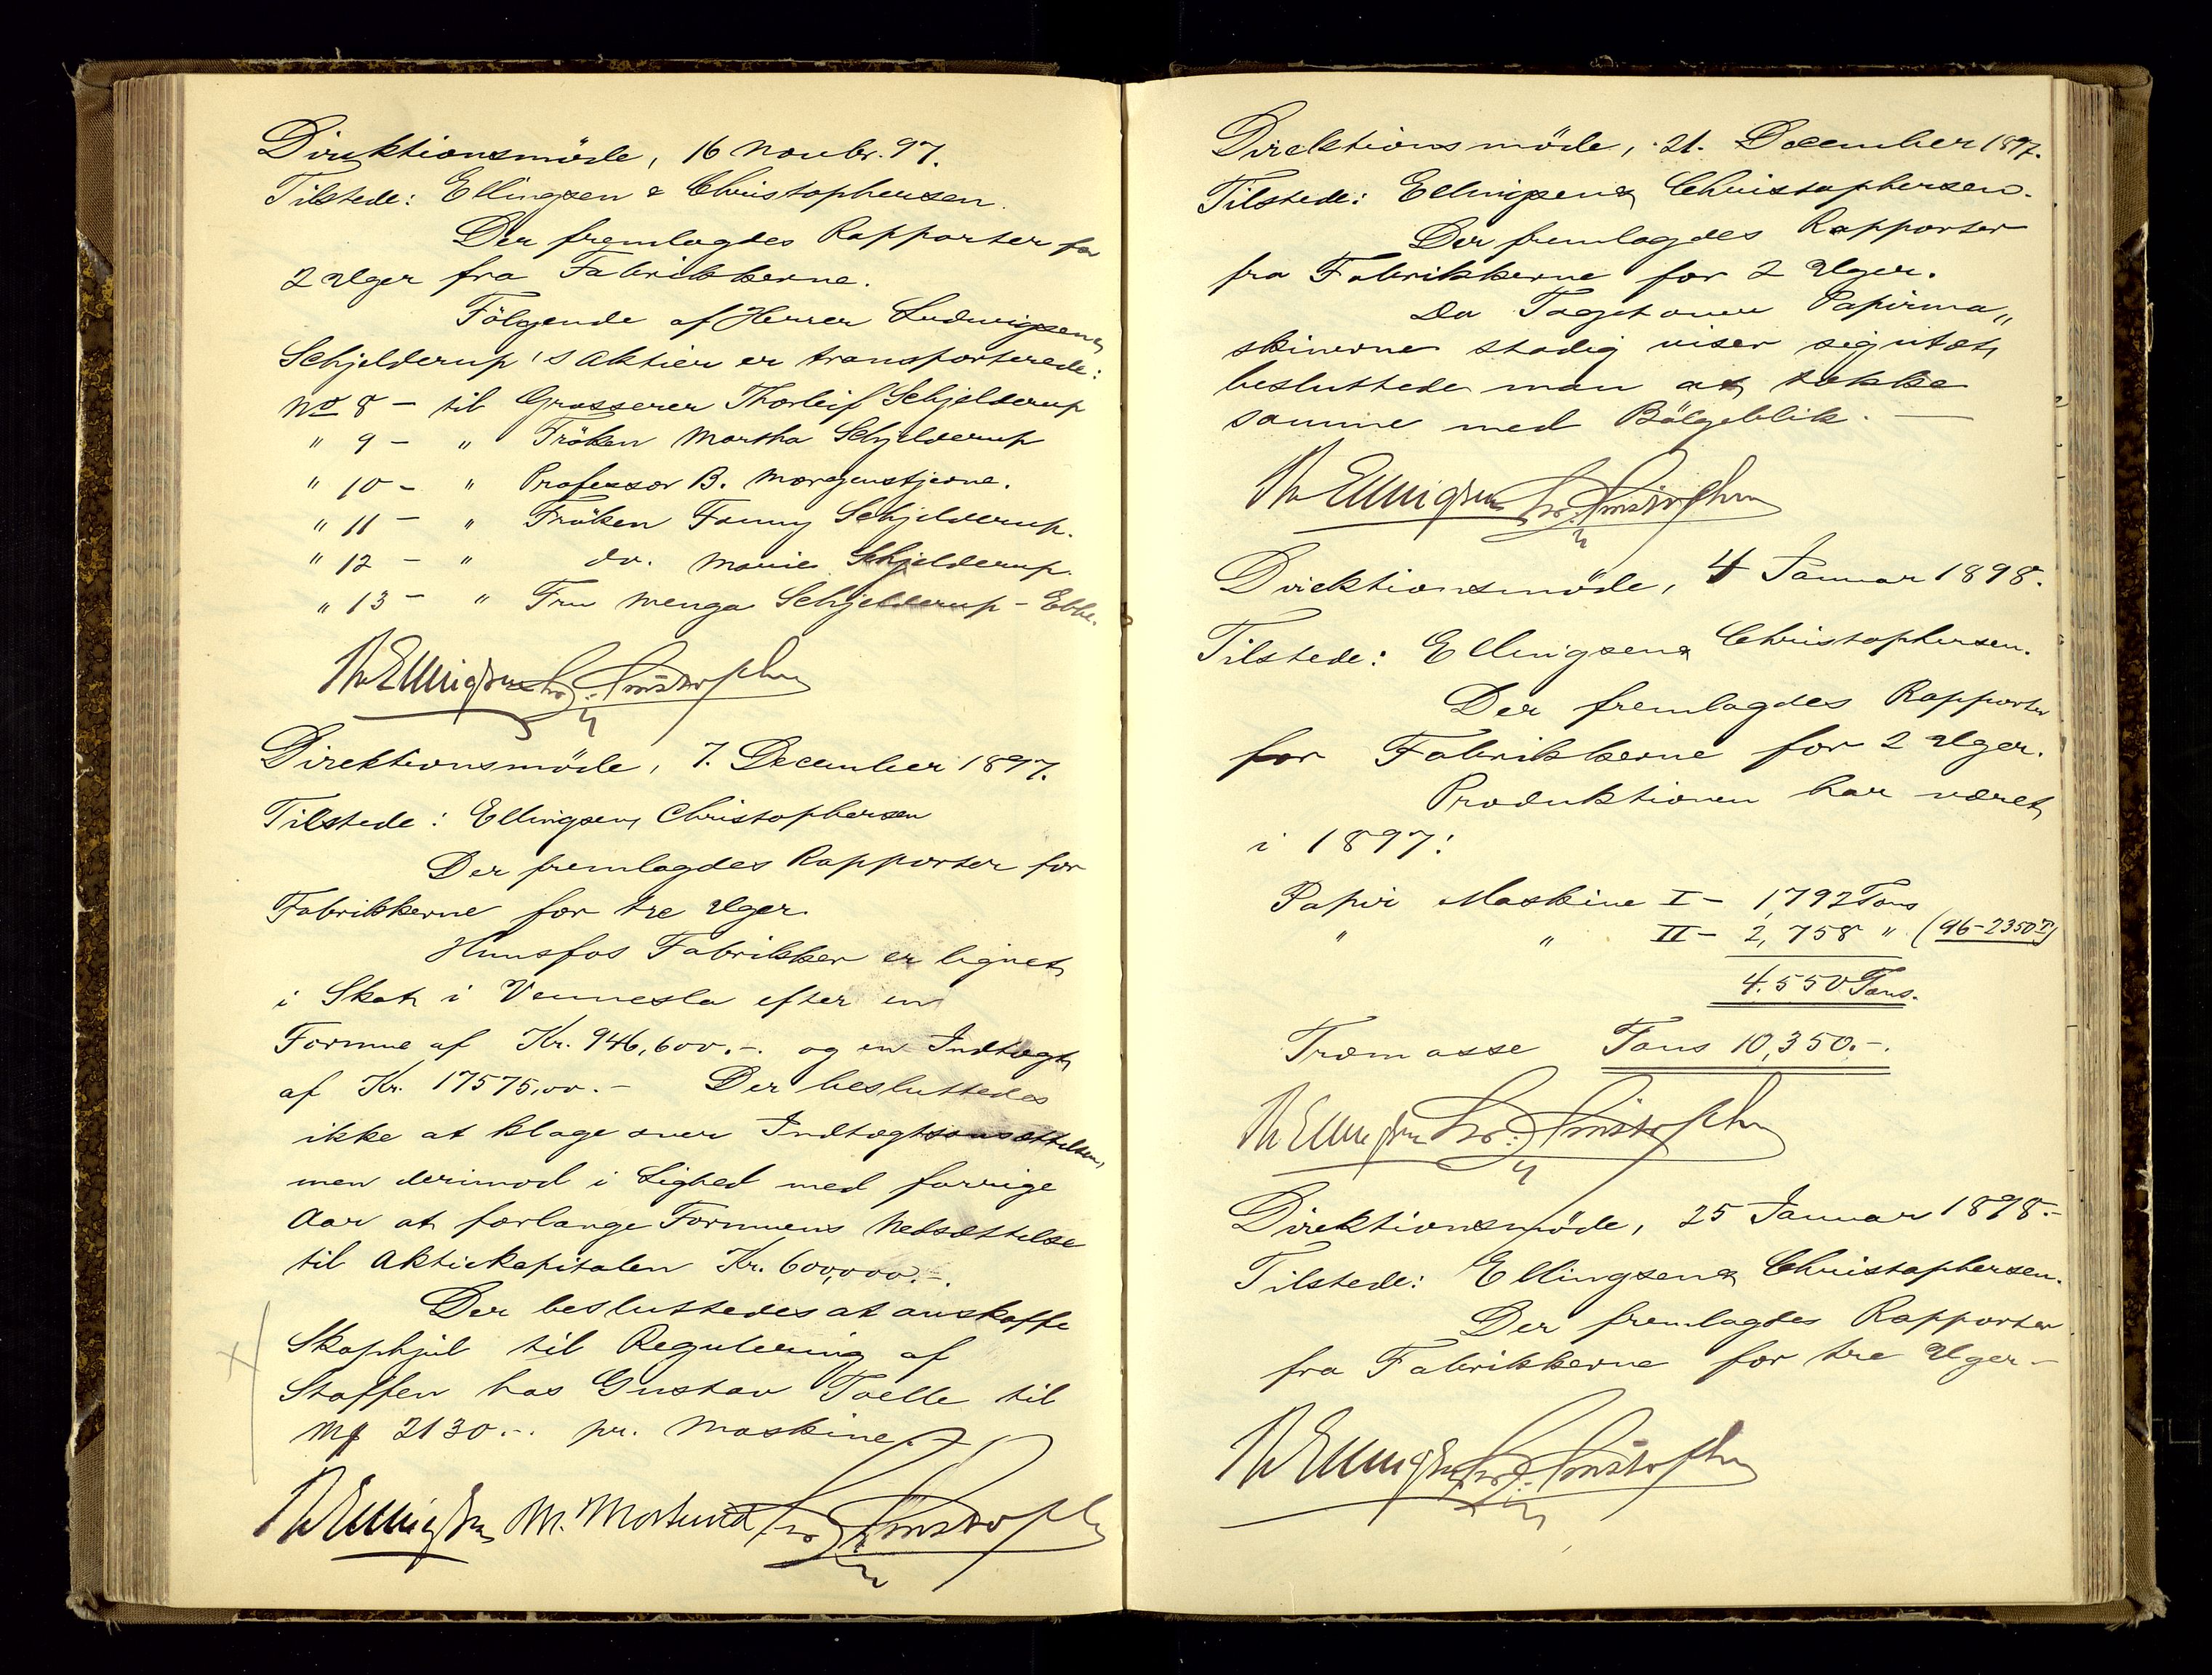 Direktionsmöde, 16 Novbr. 97.
Tilstede: Ellingsen & Christophersen.
Der fremlagdes Rapporter for
2 Uger fra Fabrikkerne.
Fölgende af Herrer Ludwigsen &
Schjelderup's Aktier er transporterede:
No 8 - til Grosserer Thorleif Schjelderup
" 9 - " Fröken Martha Schjelderup
" 10 - " Professor B. Morgenstjerne.
" 11 - " Fröken Fanny Schjelderup.
" 12 - " do. Marie Schjelderup.
" 13 - " Fru Menga Schjelderup-Ebbe.
Th Ellingsen Chr. Christophersen
Direktionsmöde, 7. December 1897.
Tilstede: Ellingsen, Christophersen
Der fremlagdes Rapporter for
Fabrikkerne for tre Uger.
Hunsfos Fabrikker er lignet
i Skat i Vennesla efter en
Formue af Kr. 946,600.-. og en Indtægt
af Kr. 17575,00.- Der besluttedes
ikke at klage over Indtægtsansættelsen,
men derimod i Lighed med forrige
Aar at forlange Formuens Nedsættelse
til Aktiekapitalen Kr. 600,000.-.
Der besluttedes at anskaffe
Skophjul til Regulering af
Stoffen hos Gustav Toelle til
Mk 2130.-. pr. Maskine.
Th Ellingsen M. Chr. Christophersen
Direktionsmöde, 21. December 1897.
Tilstede: Ellingsen & Christophersen.
Der fremlagdes Rapporter
fra Fabrikkerne for 2 Uger.
Da Taget over Papirma„
skinerne stadig viser sig utæt,
besluttede man at tække
samme med Bölgeblik. —
Th Ellingsen Chr. Christophersen
Direktionsmöde, 4 Januar 1898.
Tilstede: Ellingsen & Christophersen.
Der fremlagdes Rapporter
for Fabrikkerne for 2 Uger.
Produktionen har været
i 1897:
Papir Maskine I - 1,792 Tons
" " II - 2,758 " (96-2350 T)
4.550 Tons.
Træmasse Tons 10,350.-.
Th Ellingsen Chr. Christophersen
Direktionsmöde, 25 Januar 1898.-
Tilstede: Ellingsen & Christophersen.
Der fremlagdes Rapporter
fra Fabrikkerne for tre Uger.-
Th Ellingsen Chr. Christophersen